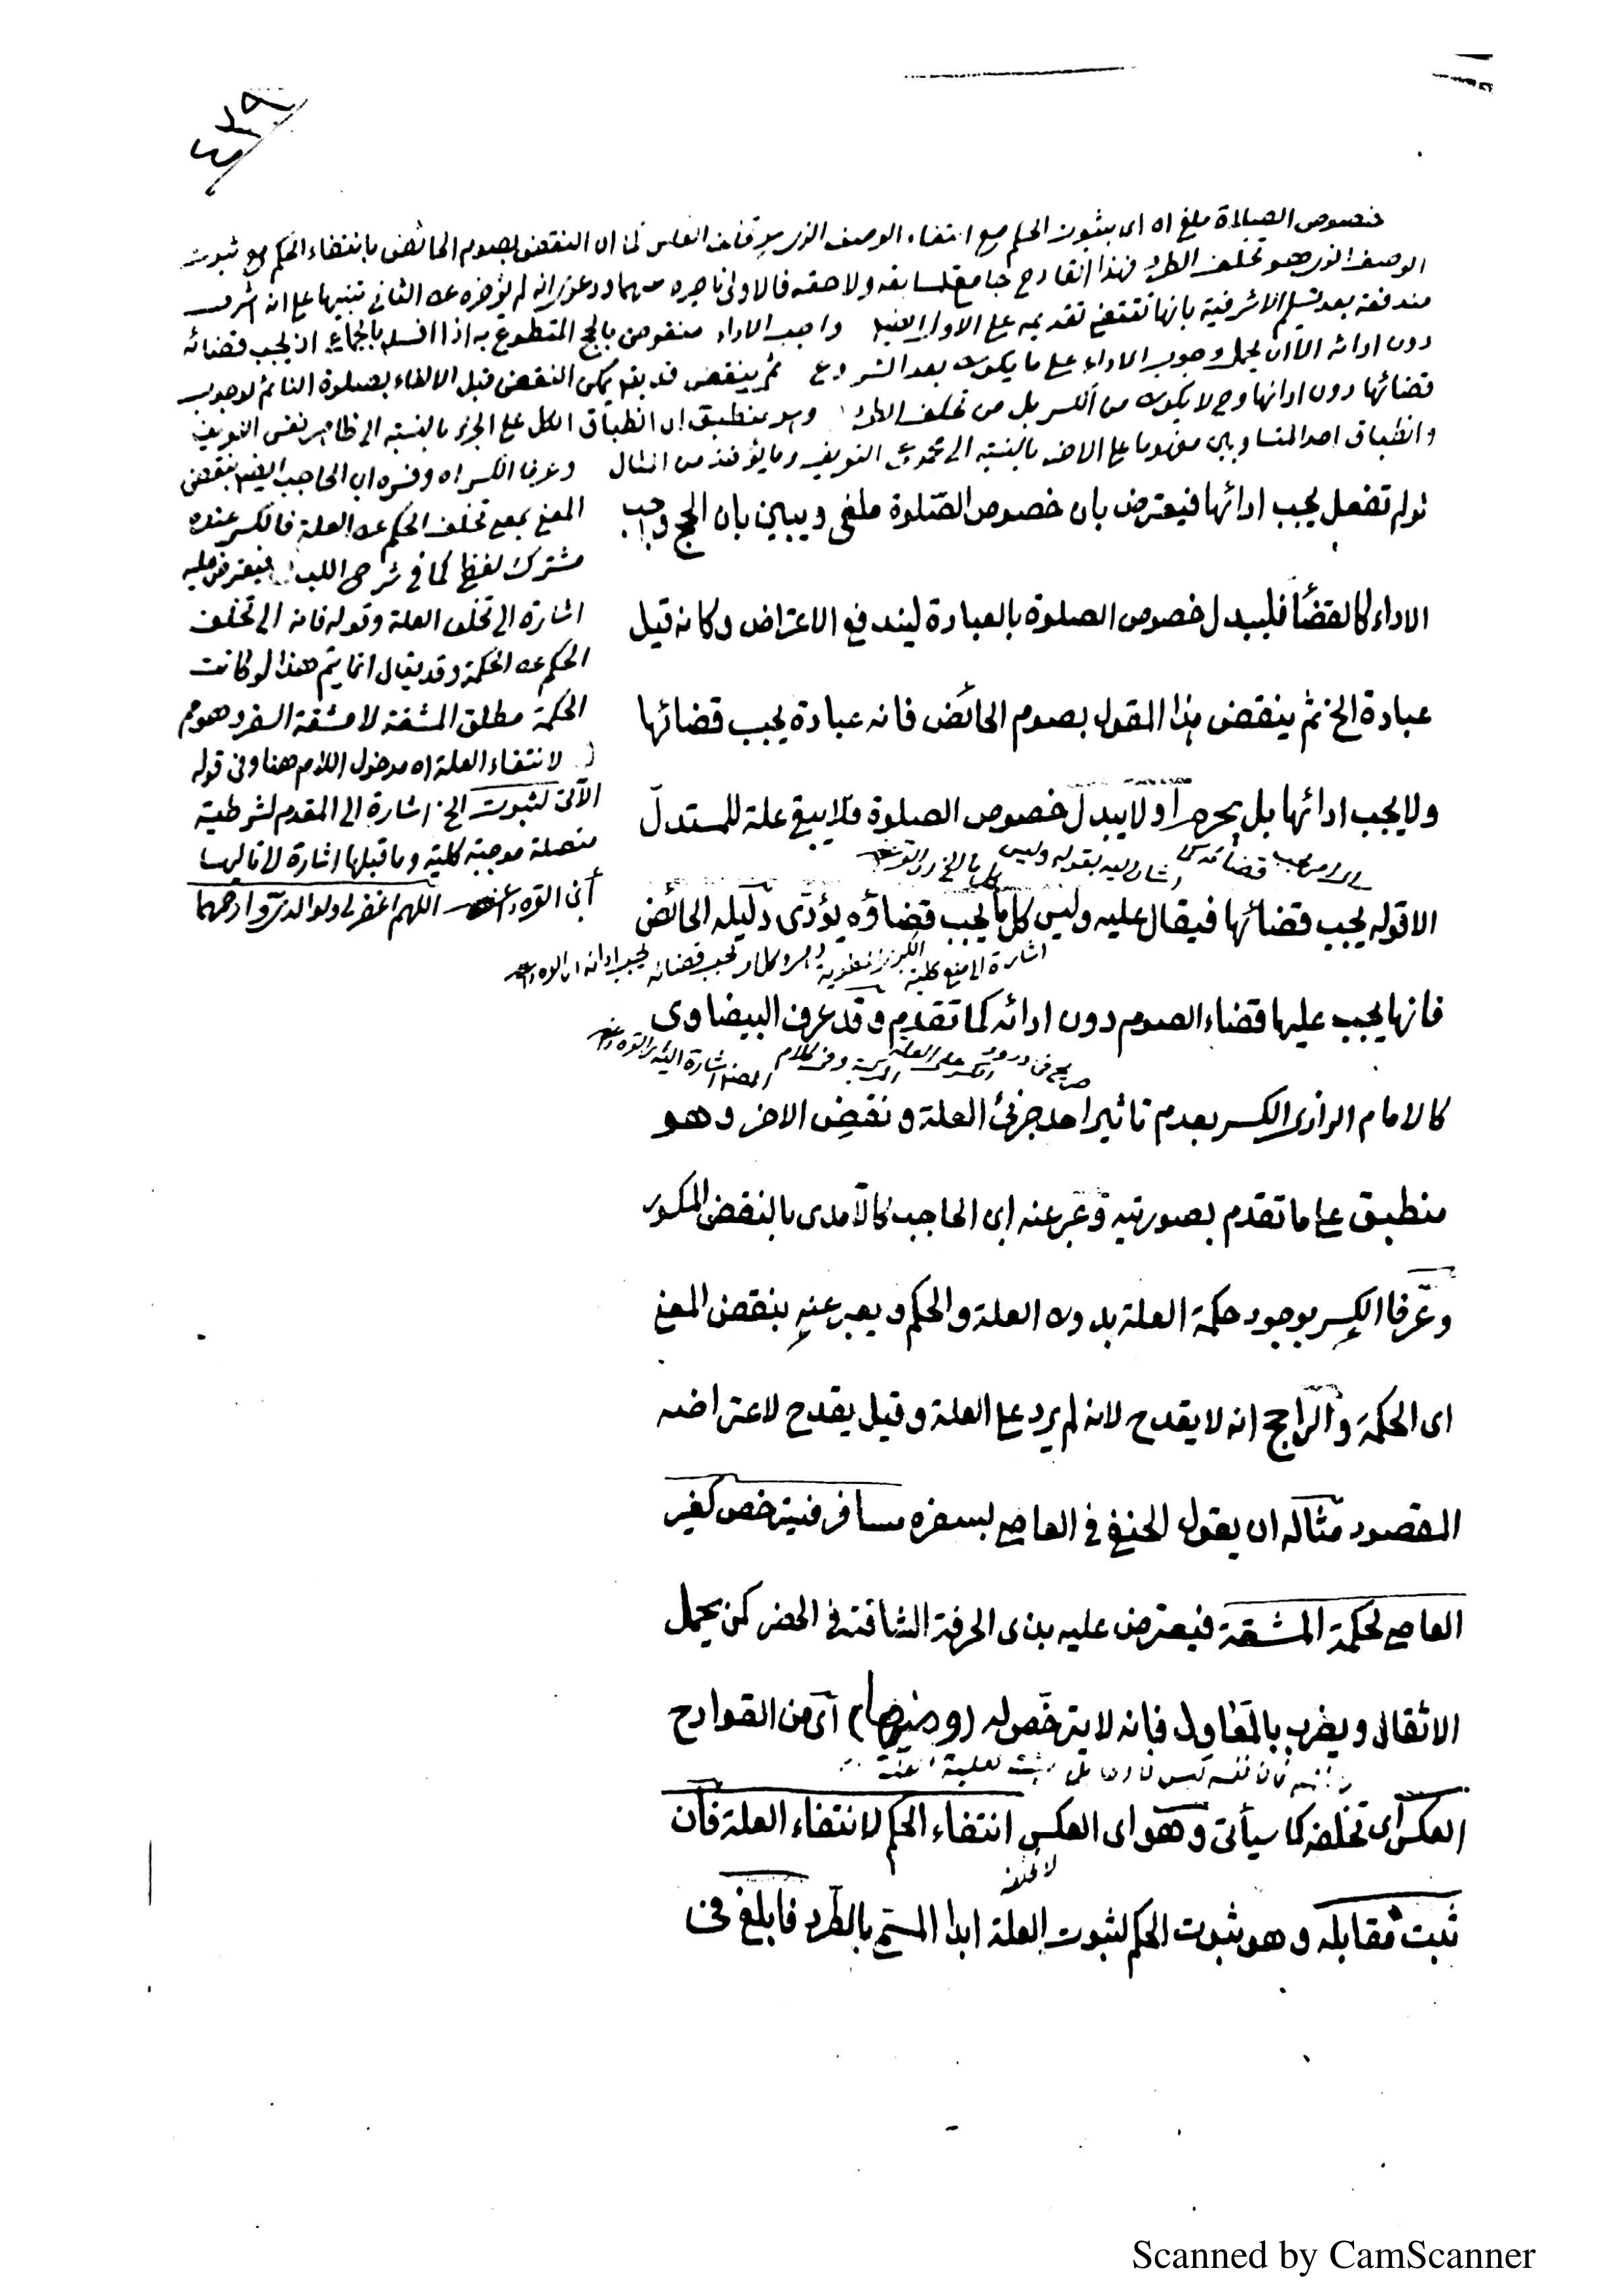 ٤٣٩
خصوص الصلاة ملغى اه اى بثبوت الحكم مع انتفاء الوصف الذى هو تخلف العكس كما ان النقض بصوم الحائض بانتفاء الحكم مع ثبوت
الوصف الذى هو تخلف الطرد فهذا القادح جامع لسابقه ولاحقه فالاولى تاخيره عنهما
مندفعة بعد تسليم الاشرفية بانها تقتضى تقديمه على الاول ايضا واجب الاداء منقوض بالحج المتطوع به اذا افسد بالجماع اذ يجب قضائه
دون ادائه الا ان يحمل وجوب الاداء على ما يكون بعد الشروع ثم ينقض قد يقال يمكن النقض قبل الالغاء بصلوة النائم لوجوب
قضائها دون ادائها وح لا يكون من الكسر بل من تخلف الطرد وهو منطبق اى انطباق الكل على الجزء بالنسبة الى ظاهر نفس التعريف
وانطباق احد المتساويين مفهوما على الاخر بالنسبة الى مجموع التعريف وما يؤخذ من المثال وعرفا الكسر اه وفسره ابن الحاجب ايضا بنقض
المعنى بمعنى تخلف الحكم عن العلة فالكسر عنده
مشترك لفظى كما فى شرح اللب فيعترض عليه
اشارة الى تخلف العلة وقوله فانه الى تخلف
الحكم عن الحكمة وقد يقال انما يتم هذا لو كانت
الحكمة مطلق المشقة لا مشقة السفر وهو مم
لانتفاء العلة اه مدخول اللام هنا وفى قوله
الآتى لثبوت الخ اشارة الى المقدم لشرطية
متصلة موجبة كلية وما قبلها اشارة لاتاليها
اللهم اغفر لى ولوالدى وارحمهما
ولم تفعل يجب ادائها فيعترض بان خصوص الصّلوة ملغى ويبين بان الحج واجب
الاداء كالقضاء فليبدل خصوص الصلوة بالعبادة ليندفع الاعتراض وكانه قيل
عبادة الخ ثم ينقض هذا المقول بصوم الحائض فانه عبادة يجب قضائها
ولا يجب ادائها بل يحرم او لا يبدل خصوص الصلوة فلا يبقى علة للمستدلّ
الا قوله يجب قضائها فيقال عليه وليس كل ما يجب قضاؤه يؤدّى دليله الحائض
فانها يجب عليها قضاء الصوم دون ادائه كما تقدم وقد عرف البيضاوى
كالامام الرازى الكسر بعدم تاثير احد جزئى العلة ونقض الاخر وهو
منطبق على ما تقدم بصورتيه وعبّر عنه ابن الحاجب كالآمدى بالنقض المكسور
وعرّفا الكسر بوجود حكمة العلة بدون العلة والحكم ويعبر عنه بنقض المعنى
اى الحكمة والراجح انه لا يقدح لانه لم يرد على العلة وقيل يقدح لاعتراضه
المقصود مثاله ان يقول الحنفى فى العاصى بسفره مسافر فيترخص كغير
العاصى لحكمة المشقة فيعترض عليه بذى الحرفة الشاقة فى الحضر كمن يحمل
الاثقال ويضرب بالمعاول فانه لا يترخّص له (ومنها) اى من القوادح
العكس اى تخلفه كما سيأتى وهو اى العكس انتفاء الحكم لانتفاء العلة فان
لا تخلفه
ثبت مقابله وهو ثبوت الحكم لثبوت العلة ابدا المسمّى بالطرد فابلغ فى
Scanned by CamScanner